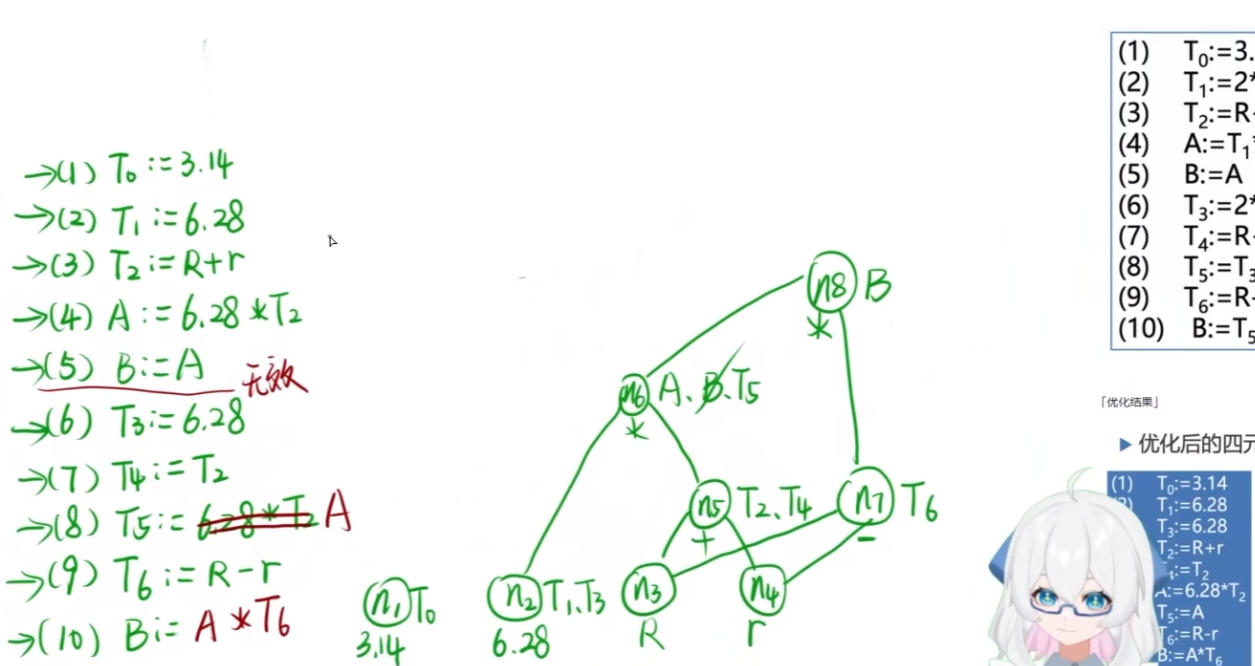 →(1) T₀:=3.14
→(2) T₁:=6.28
→(3) T₂:=R+r
→(4) A:=6.28*T₂
→(5) B:=A 无效
→(6) T₃:=6.28
→(7) T₄:=T₂
→(8) T₅:=6.28*T₂ A
→(9) T₆:=R-r
→(10) B:=A*T₆
n8 B
*
n6 A、B、T₅
*
n5 T₂、T₄
+
n7 T₆
-
n₁ T₀
3.14
n₂ T₁、T₃
6.28
n3
R
n4
r
(1) T₀:=3.
(2) T₁:=2*
(3) T₂:=R
(4) A:=T₁*
(5) B:=A
(6) T₃:=2*
(7) T₄:=R
(8) T₅:=T₃
(9) T₆:=R-
(10) B:=T₅
「优化结果」
▶ 优化后的四元
(1) T₀:=3.14
T₁:=6.28
T₃:=6.28
T₂:=R+r
:=T₂
A:=6.28*T₂
T₅:=A
T₆:=R-r
B:=A*T₆